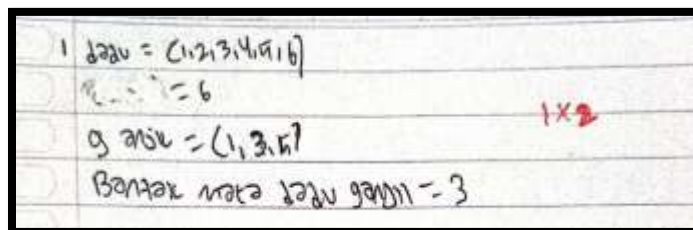 1 dadu = (1,2,3,4,5,6)
= 6
1 x 2
ganjil = (1,3,5)
Banyak mata dadu ganjil = 3